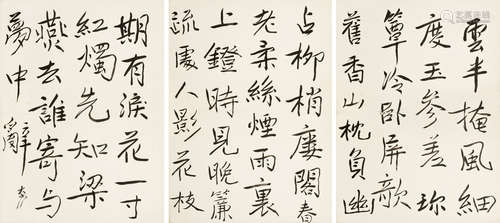 雲半掩風細
度玉參差珎
簟冷卧屏欹
舊香山枕負幽
占柳梢廔閣春
老柔絲煙雨裏
上鐙時見晚簾
疏處人影花枝
期有淚花一寸
紅燭先知梁
燕去誰寄与
夢中